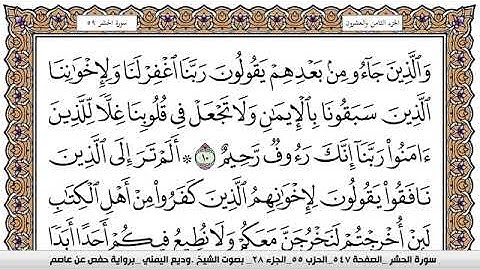 الجزء الثامن والعشرون
سورة الحشر ٥٩
وَالَّذِينَ جَاءُو مِنْ بَعْدِهِمْ يَقُولُونَ رَبَّنَا اغْفِرْ لَنَا وَلِإِخْوَانِنَا
الَّذِينَ سَبَقُونَا بِالْإِيمَانِ وَلَا تَجْعَلْ فِي قُلُوبِنَا غِلًّا لِلَّذِينَ
ءَامَنُوا رَبَّنَا إِنَّكَ رَءُوفٌ رَحِيمٌ ١٠ ۞ أَلَمْ تَرَ إِلَى الَّذِينَ
نَافَقُوا يَقُولُونَ لِإِخْوَانِهِمُ الَّذِينَ كَفَرُوا مِنْ أَهْلِ الْكِتَابِ
لَئِنْ أُخْرِجْتُمْ لَنَخْرُجَنَّ مَعَكُمْ وَلَا نُطِيعُ فِيكُمْ أَحَدًا أَبَدًا
سورة الحشر _الصفحة ٥٤٧_الحزب ٥٥_الجزء ٢٨_ بصوت الشيخ .وديع اليمني .برواية حفص عن عاصم